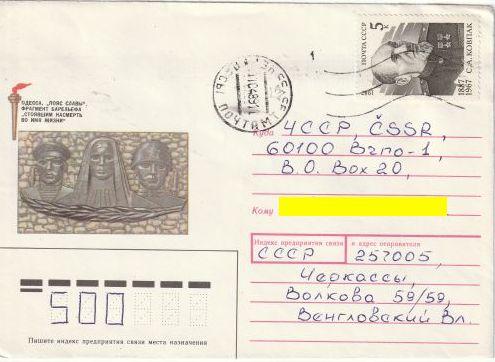 5 к
ПОЧТА СССР
С.А. КОВПАК
1887
1967
1987
ПОЧТАМТ
ОДЕССА. „ПОЯС СЛАВЫ".
ФРАГМЕНТ БАРЕЛЬЕФА
„СТОЯВШИМ НАСМЕРТЬ
ВО ИМЯ ЖИЗНИ"
Куда ЧССР, ČSSR,
60100 Брно-1,
B.O. Box 20,
Кому
Индекс предприятия связи и адрес отправителя
СССР 257005,
Черкассы,
Волкова 59/59,
Венгловский Вл.
500
Пишите индекс предприятия связи места назначения